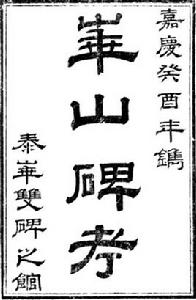 嘉慶癸酉年鐫
華山碑考
泰華雙碑之館